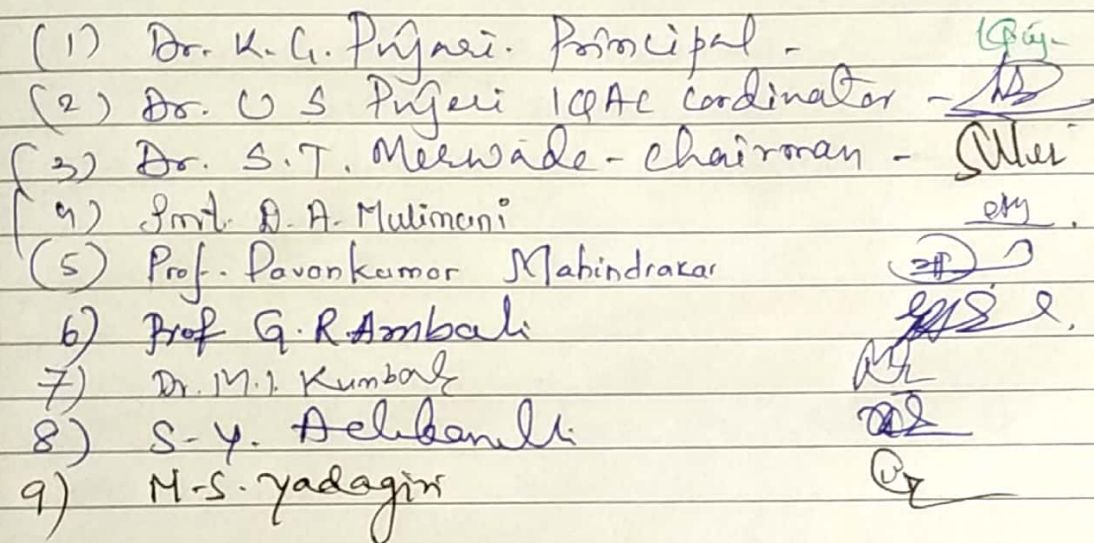 (1) Dr. K. G. Pujari. Principal -
(2) Dr. U S Pujeri IQAC Cordinator -
(3) Dr. S.T. Merwade - Chairman -
(4) Smt. D. A. Mulimani
(5) Prof. Pavankumar Mahindrakar
6) Prof G. R. Ambali
7) Dr. M. I. Kumbar
8) S. Y.
9) M. S. Yadagiri